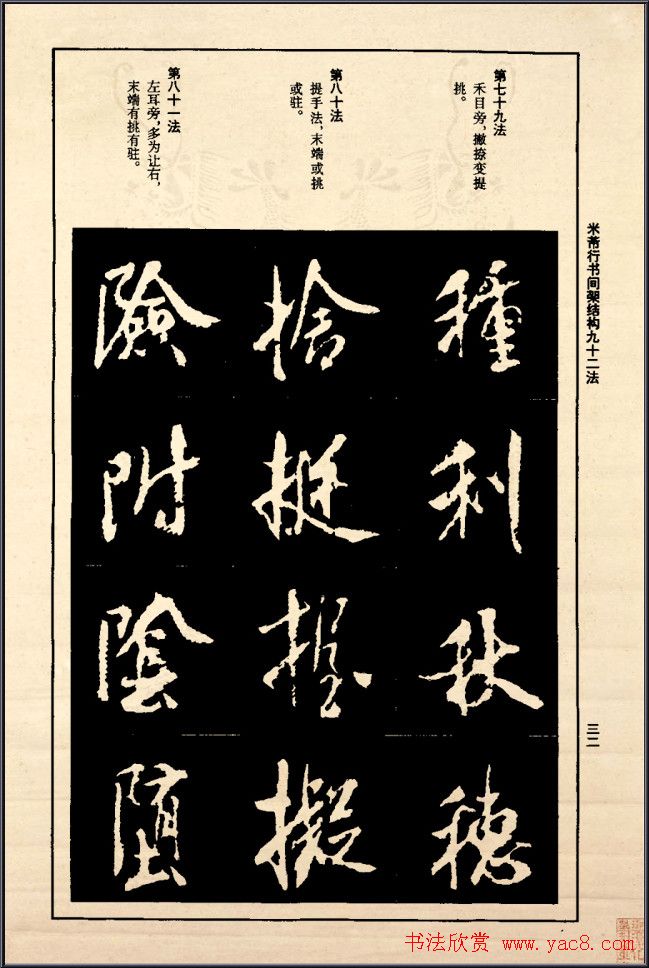 米芾行书间架结构九十二法
三二
第七十九法
禾目旁,撇捺变提
挑。
種利秋穗
第八十法
提手法,末端或挑
或驻。
捨挺握擬
第八十一法
左耳旁,多为让右,
末端有挑有驻。
險附陰墮
书法欣赏 www.yac8.com